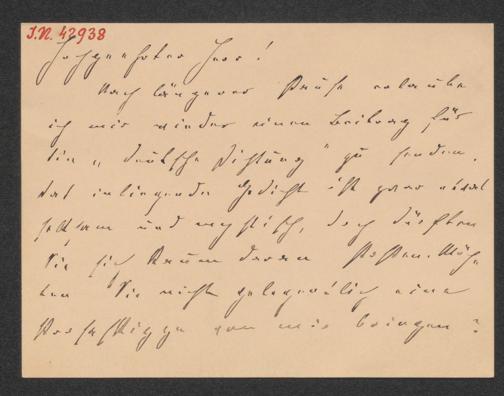 I.N. 42938
Hochgeehrter Herr!
Nach längerer Pause erlaube
ich mir wieder einen Beitrag für
die „Deutsche Dichtung" zu senden.
Das inliegende Gedicht ist zwar etwas
seltsam und mystisch, doch dürften
Sie sich kaum daran stoßen. Möch-
ten Sie nicht gelegentlich eine
von mir bringen?